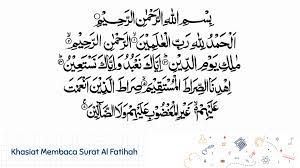 بِسْمِ اللهِ الرَّحْمٰنِ الرَّحِيْمِ
اَلْحَمْدُ لِلّٰهِ رَبِّ الْعٰلَمِيْنَ ۝ الرَّحْمٰنِ الرَّحِيْمِ ۝
مٰلِكِ يَوْمِ الدِّيْنِ ۝ اِيَّاكَ نَعْبُدُ وَاِيَّاكَ نَسْتَعِيْنُ ۝
اِهْدِنَا الصِّرَاطَ الْمُسْتَقِيْمَ ۝ صِرَاطَ الَّذِيْنَ اَنْعَمْتَ
عَلَيْهِمْ ۝ غَيْرِ الْمَغْضُوْبِ عَلَيْهِمْ وَلَا الضَّالِّيْنَ ۝
Khasiat Membaca Surat Al Fatihah